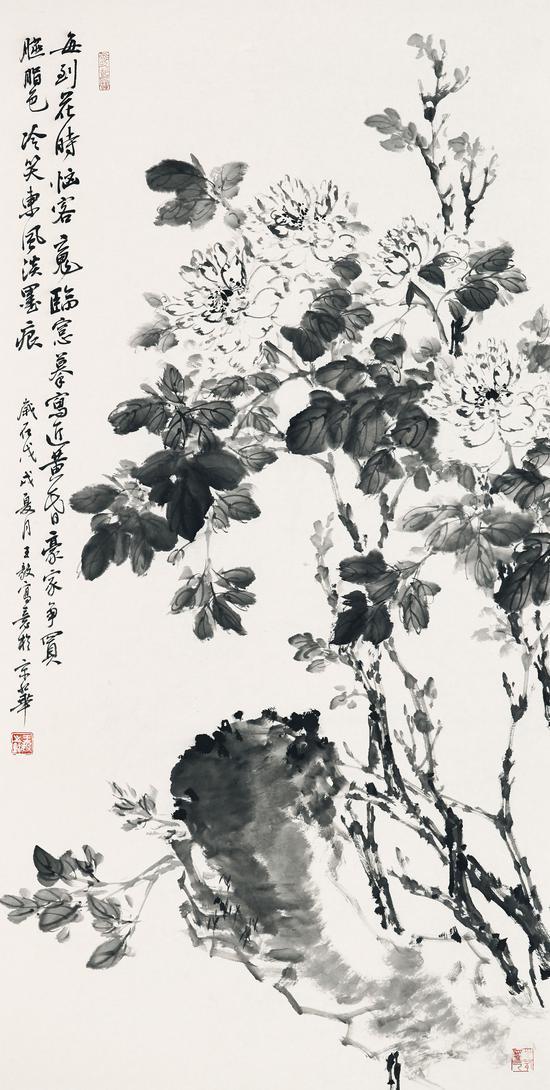 每到花時惱客魂臨窓摹寫近黃昏豪家争買
臙脂色冷笑東風淡墨痕
歲在戊戌夏月王毅寫意於京華